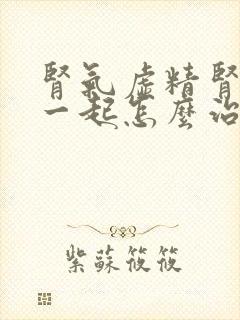 腎氣虛精腎
一起怎麼治
紫蘇筱筱